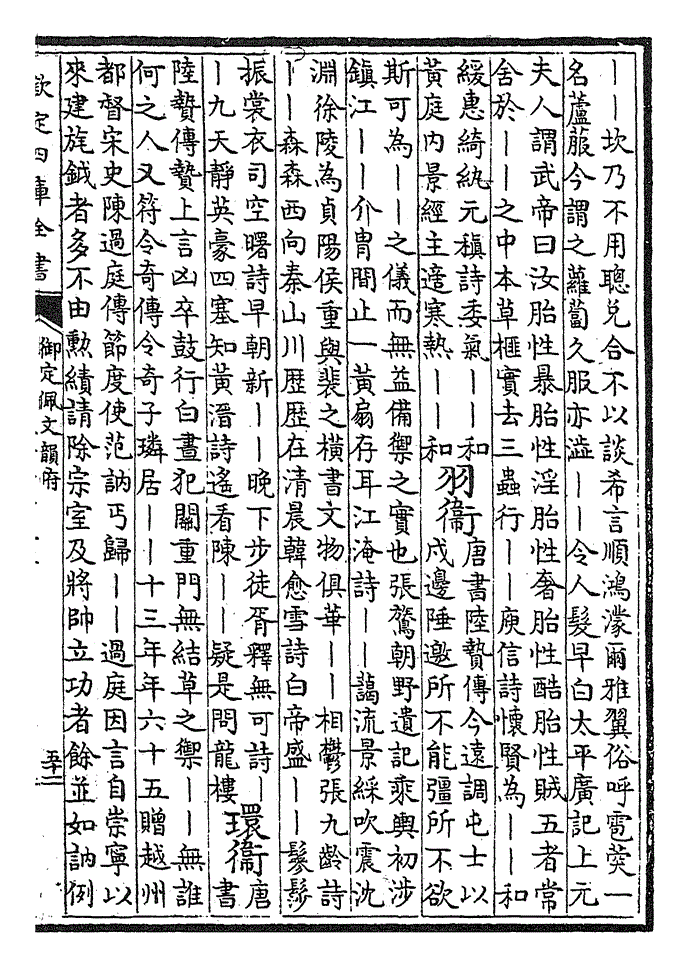 ｜｜坎乃不用聰兌合不以談希言順鴻濛爾雅翼俗呼雹葖一
名蘆菔今謂之蘿蔔久服亦澁｜｜令人髮早白太平廣記上元
夫人謂武帝曰汝胎性暴胎性淫胎性奢胎性酷胎性賊五者常
舍於｜｜之中本草榧實去三蟲行｜｜庾信詩懷賢為｜｜和
緩惠綺紈元稹詩委氣｜｜和
黃庭內景經主適寒熱｜｜和
羽衞
唐書陸贄傳今遠調屯士以
戍邊陲邀所不能彊所不欲
斯可為｜｜之儀而無益備禦之實也張鷟朝野遺記乘輿初涉
鎮江｜｜介胄間止一黃扇存耳江淹詩｜｜藹流景綵吹震沈
淵徐陵為貞陽侯重與裴之橫書文物俱華｜｜相鬱張九齡詩
｜｜森森西向秦山川歷歷在清晨韓愈雪詩白帝盛｜｜鬖髿
振裳衣司空曙詩早朝新｜｜晚下步徒胥釋無可詩｜
｜九天靜英豪四塞知黃溍詩遙看陳｜｜疑是問龍樓
環衞
唐
書
陸贄傳贄上言凶卒鼓行白晝犯闕重門無結草之禦｜｜無誰
何之人又符令奇傳令奇子璘居｜｜十三年年六十五贈越州
都督宋史陳過庭傳節度使范訥丐歸｜｜過庭因言自崇寧以
來建旄鉞者多不由勳績請除宗室及將帥立功者餘並如訥例
欽定四庫全書
御定佩文韻府
五十二